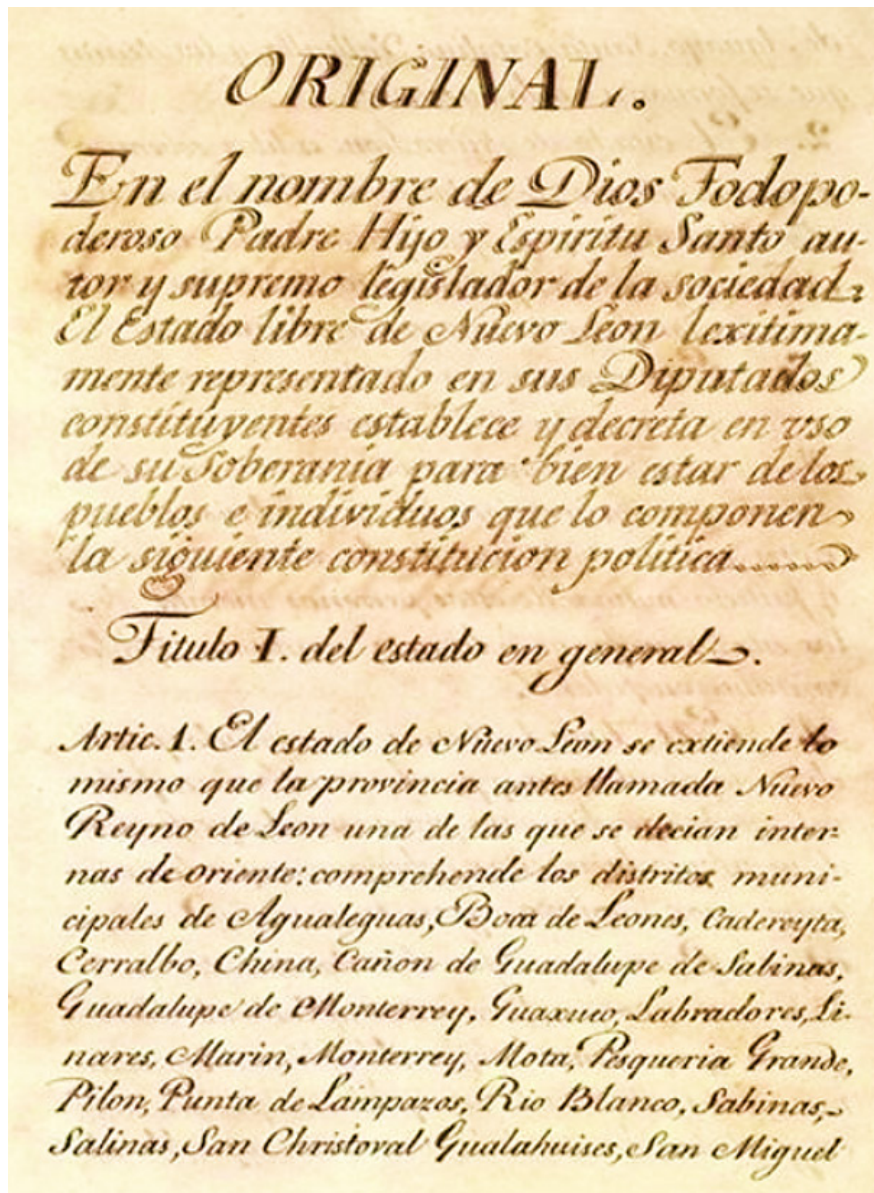 ORIGINAL.
En el nombre de Dios Todopo-
deroso Padre Hijo y Espiritu Santo au-
tor y supremo legislador de la sociedad.
El Estado libre de Nuevo Leon lexitima-
mente representado en sus Diputados
constituyentes establece y decreta en vso
de su Soberania para bien estar de los
pueblos e individuos que lo componen
la siguiente constitucion politica......
Titulo I. del estado en general.
Artic. 1. El estado de Nuevo Leon se extiende lo
mismo que la provincia antes llamada Nuevo
Reyno de Leon una de las que se decian inter-
nas de oriente: comprehende los distritos muni-
cipales de Agualeguas, Boca de Leones, Cadereyta,
Cerralbo, China, Cañon de Guadalupe de Salinas,
Guadalupe de Monterrey, Guaxuco, Labradores, Li-
nares, Marin, Monterrey, Mota, Pesqueria Grande,
Pilon, Punta de Lampazos, Rio Blanco, Sabinas,
Salinas, San Christoval Gualahuises, San Miguel